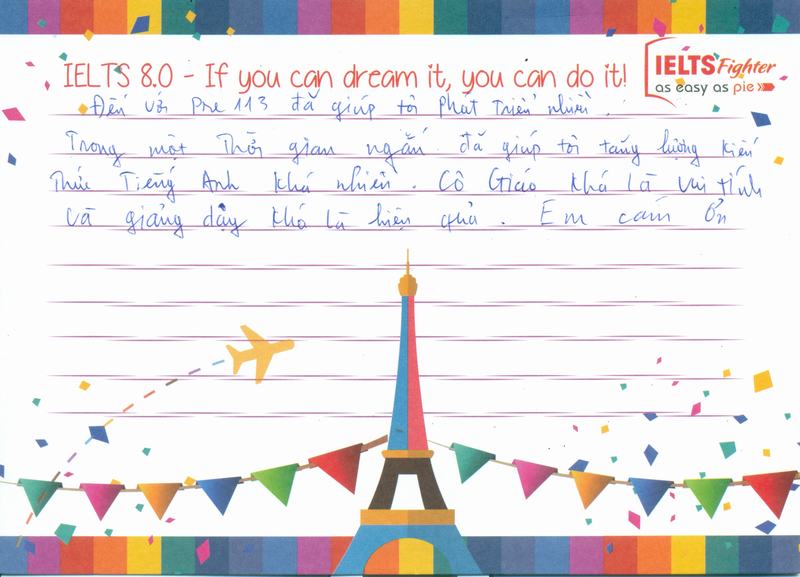 IELTS 8.0 - If you can dream it, you can do it!
IELTS Fighter
as easy as pie
Đến với Pre 113 đã giúp tôi phát triển nhiều.
Trong một thời gian ngắn đã giúp tôi tăng lượng kiến
thức Tiếng Anh khá nhiều. Cô Giáo khá là vui tính
và giảng dạy khá là hiệu quả. Em cảm ơn